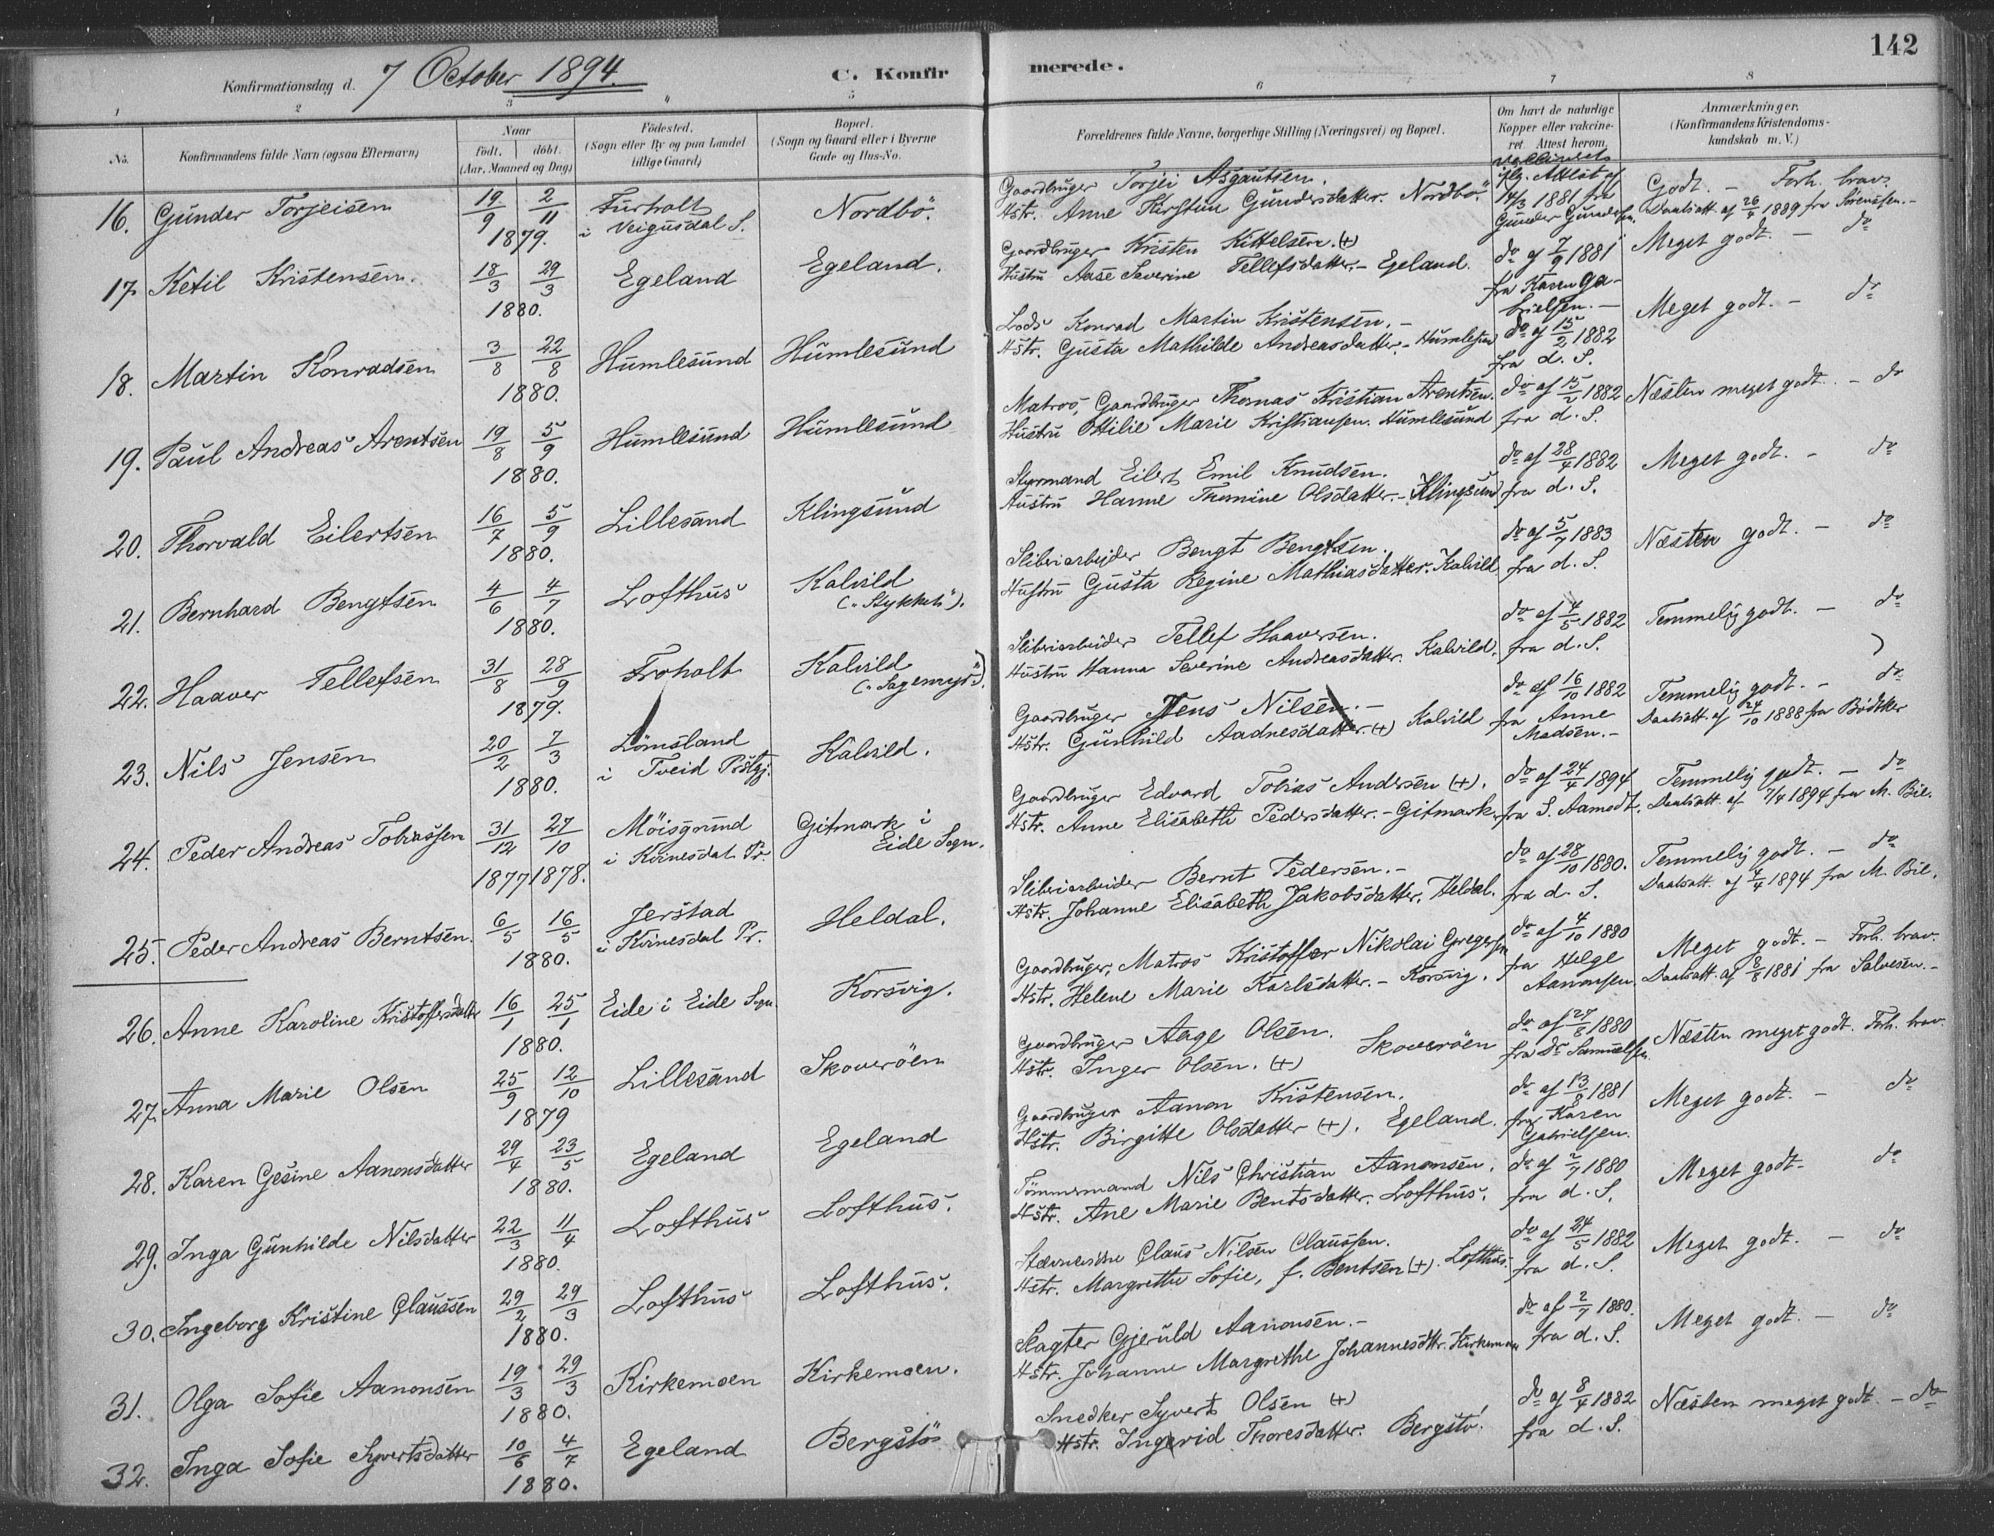 142
Konfirmationsdag d. 7 October 1894.
C. Konfirmerede.
1 2 3 4 5 6 7 8
No.
Konfirmandens fulde Navn (ogsaa Efternavn)
Naar
födt. döbt.
(Aar, Maaned og Dag)
Födested.
(Sogn eller By og paa Landet
tillige Gaard)
Bopæl.
(Sogn og Gaard eller i Byerne
Gade og Hus-No.
Forældrenes fulde Navne, borgerlige Stilling (Næringsvei) og Bopæl.
Om havt de naturlige
Kopper eller vakcine-
ret. Attest herom.
Anmærkninger.
(Konfirmandens Kristendoms-
kundskab m. V.)
16. Gunder Torjeisen 19/9 2/11 1879. Furholt i Veigusdal S. Nordbö.
Gaardbruger Torjei Asgautsen.
Hstr. Anne Kirstine Gundersdatter. Nordbö.
Attest af 14/3 1881 fra Gunder Gundersen.
Godt. – Forh. brav.
Daabsatt. af 26/4 1889 fra Sørenssen. –
17. Ketil Kristensen. 18/3 29/3 1880. Egeland Egeland.
Gaardbruger Kristen Kittelsen. (+)
Hustru Aase Severine Tellefsdatter. – Egeland.
do af 7/9 1881 fra Karen Gabrielsen. –
Meget godt. – do
18. Martin Konradsen 3/8 22/8 1880. Humlesund Humlesund
Lods Konrad Martin Kristensen. –
Hstr. Gusta Mathilde Andreasdatter. – Humlesund
do af 15/2 1882 fra d. S.
Meget godt. – do
19. Paul Andreas Arentsen 19/8 5/9 1880. Humlesund Humlesund
Matros, Gaardbruger Thomas Kristian Arentsen.
Hustru Ottilie Marie Kristiansen. Humlesund
do af 15/2 1882 fra d. S.
Næsten meget godt. – do
20. Thorvald Eilertsen 16/7 5/9 1880. Lillesand Klingsund
Styrmand Eilert Emil Knudsen.
Hustru Hanne Thomine Olsdatter. – Klingsund
do af 28/4 1882 fra d. S.
Meget godt. – do
21. Bernhard Bengtsen 4/6 4/7 1880. Lofthus Kalvild („Stykket“).
Sliberiarbeider Bengt Bengtsen.
Hustru Gusta Regine Mathiasdatter. Kalvild
do af 5/7 1883 fra d. S.
Næsten godt. – do
22. Haaver Tellefsen 31/8 28/9 1879. Froholt Kalvild
Sliberiarbeider Tellef Haaversen.
Hustru Hanna Severine Andreasdatter. Kalvild.
do af 4/5 1882 fra d. S.
Temmelig godt. – do
23. Nils Jensen 20/2 7/3 1880. Lömsland i Tveid Kalvild.
Gaardbruger Jens Nilsen. –
Hstr. Gunhild Aadnesdatter. (+) Kalvild
do af 16/10 1882 fra Anne Madsen. –
Temmelig godt. – do
Daabsatt. af 24/10 1888 fra Bödtker
24. Peder Andreas Tobiassen 31/12 1877 27/10 1878. Möisgrund i Kvinesdal Pr. Gitmark i Eide Sogn.
Gaardbruger Edvard Tobias Andersen (+).
Hstr. Anne Elisabeth Pedersdatter. – Gitmark.
do af 24/4 1894 fra S. Aamodt.
Temmelig godt. – do
Daabsatt. af 7/4 1894 fra M. Bil.
25. Peder Andreas Berntsen. 6/5 16/5 1880. Jerstad i Kvinesdal Pr. Heldal.
Sliberiarbeider Bernt Pedersen. –
Hstr. Johanne Elisabeth Jakobsdatter. Heldal.
do af 28/10 1880. fra d. S.
Temmelig godt. – do
Daabsatt. af 4/4 1894 fra M. Bil.
26. Anne Karoline Kristoffersdatter 16/1 25/1 1880. Eide i Eide Sogn Korsvig.
Gaardbruger, Matros Kristoffer Nikolai Gregersen
Hstr. Helene Marie Karlsdatter. – Korsvig.
do af 4/10 1880 fra Helge Aanonsen.
Meget godt. – Forh. brav.
Daabsatt. af 8/8 1881 fra Salvesen. –
27. Anna Marie Olsen 25/9 12/10 1879 Lillesand Skoveröen
Gaardbruger Aage Olsen.
Hstr. Inger Olsen. (+) Skoveröen
do af 27/8 1880 fra Dr Samuelsen.
Næsten meget godt. Forh. brav.
28. Karen Gesine Aanonsdatter 29/4 23/5 1880. Egeland Egeland
Gaardbruger Aanon Kristensen.
Hstr. Birgitte Olsdatter (+). Egeland.
do af 13/8 1881 fra Karen Gabrielsen.
Meget godt. – do
29. Inga Gunhilde Nilsdatter 22/3 11/4 1880. Lofthus Lofthus.
Tömmermand Nils Christian Aanonsen.
Hstr. Ane Marie Bentsdatter. Lofthus.
do af 2/7 1880 fra d. S.
Meget godt. do
30. Ingeborg Kristine Claussen 29/2 29/3 1880. Lofthus Lofthus.
Claus Nilsen Claussen.
Hstr. Margrethe Sofie, f. Bentsen (+). Lofthus.
do af 24/5 1882 fra d. S.
Meget godt. – do
31. Olga Sofie Aanonsen 19/3 29/3 1880. Kirkemoen Kirkemoen.
Slagter Gjeruld Aanonsen. –
Hstr. Johanne Margrethe Johannesdtr. Kirkemoen
do af 2/7 1880. fra d. S.
Meget godt. – do
32. Inga Sofie Syvertsdatter 10/6 4/7 1880. Egeland Bergstö
Snedker Syvert Olsen (+)
Hstr. Ingerid Thoresdatter. Bergstö.
do af 8/4 1882 fra d. S.
Næsten meget godt. – do